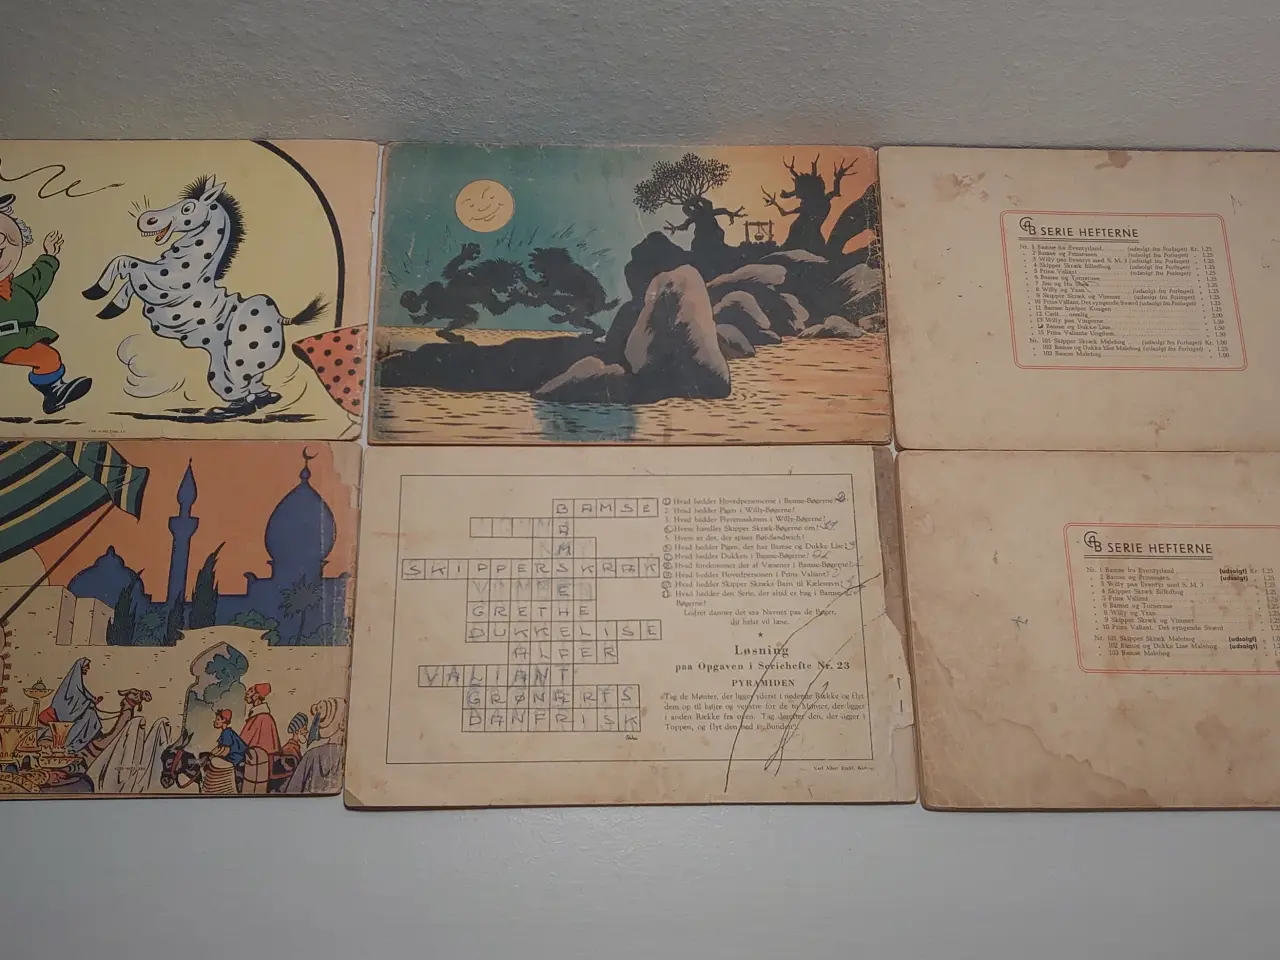 GB SERIE HEFTERNE
Nr. 1 Bamse fra Eventyrland (udsolgt fra Forlaget) Kr. 1.25
" 2 Bamse og Prinsessen (udsolgt fra Forlaget) " 1.25
" 3 Willy paa Eventyr med S. M. J (udsolgt fra Forlaget) " 1.25
" 4 Skipper Skræk Billedbog (udsolgt fra Forlaget) " 1.25
" 5 Prins Valiant (udsolgt fra Forlaget) " 1.25
" 6 Bamse og Tornerose " 1.25
" 8 Willy og Ysan (udsolgt fra Forlaget) " 1.25
" 9 Skipper Skræk og Vismner (udsolgt fra Forlaget) " 1.25
" 10 Prins Valiant. Det syngende Sværd (udsolgt fra Forlaget) " 1.25
" 11 Bamse hjælper Kongen " 1.25
" 13 Willy paa Vingerne " 1.50
Bamse og Dukke Lise " 1.50
" 15 Prins Valiants Ungdom " 1.50
Nr. 101 Skipper Skræk Malebog (udsolgt fra Forlaget) Kr. 1.00
" 102 Bamse og Dukke Lise Malebog (udsolgt fra Forlaget) " 1.25
" 103 Bamse Malebog " 1.00
BAMSE
SKIPPERSKRÆK
GRETHE
DUKKELISE
ALFER
VALIANT
GRØNÆRTS
DANFRISK
Hvad hedder Hovedpersonerne i Bamse-Bøgerne?
2. Hvad hedder Pigen i Willy-Bøgerne?
3. Hvad hedder Flyvemaskinen i Willy-Bøgerne?
Hvem handler Skipper Skræk-Bøgerne om?
5. Hvem er det, der spiser Bøf-Sandwich?
Hvad hedder Pigen, der har Bamse og Dukke Lise?
Hvad hedder Dukken i Bamse-Bøgerne?
Hvad forekommer der af Væsener i Bamse-Bøgerne?
Hvad hedder Hovedpersonen i Prins Valiant?
Hvad hedder Skipper Skræks Barn til Kælenavn?
Hvad hedder den Serie, der altid er bag i Bamse-
Bøgerne?
Lodret danner det saa Navnet paa de Bøger,
du helst vil læse.
Løsning
paa Opgaven i Seriehefte Nr. 23
PYRAMIDEN
Tag de Mønter, der ligger yderst i nederste Række og flyt
dem op til højre og venstre for de to Mønter, der ligger
i anden Række fra oven. Tag derefter den, der ligger i
Toppen, og flyt den ned i Bunden.
GB SERIE HEFTERNE
Nr. 1 Bamse fra Eventyrland (udsolgt) Kr. 1.25
" 2 Bamse og Prinsessen (udsolgt)
" 3 Willy paa Eventyr med S. M. J
" 4 Skipper Skræk Billedbog
" 5 Prins Valiant
" 6 Bamse og Tornerose
" 8 Willy og Ysan
" 9 Skipper Skræk og Vismner
" 10 Prins Valiant. Det syngende Sværd
Nr. 101 Skipper Skræk Malebog (udsolgt)
" 102 Bamse og Dukke Lise Malebog (udsolgt)
" 103 Bamse Malebog